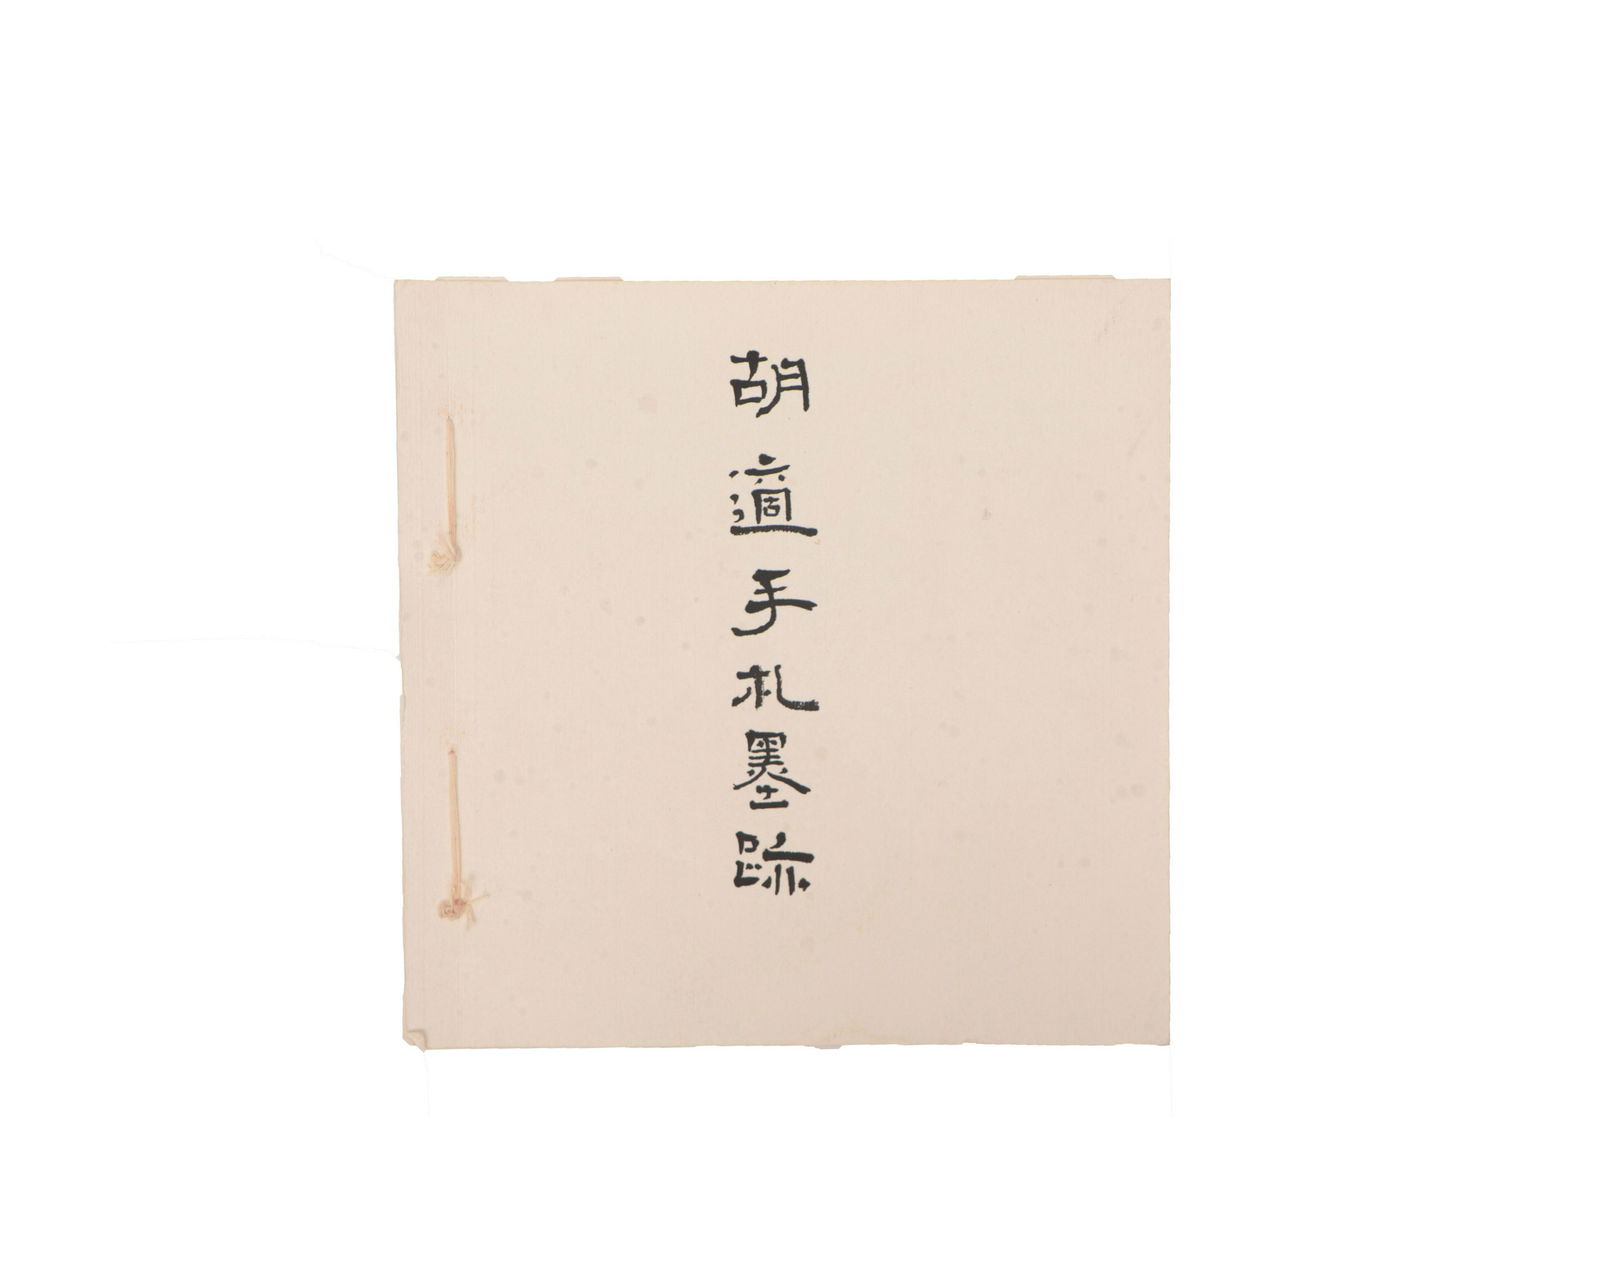 胡適手札墨跡